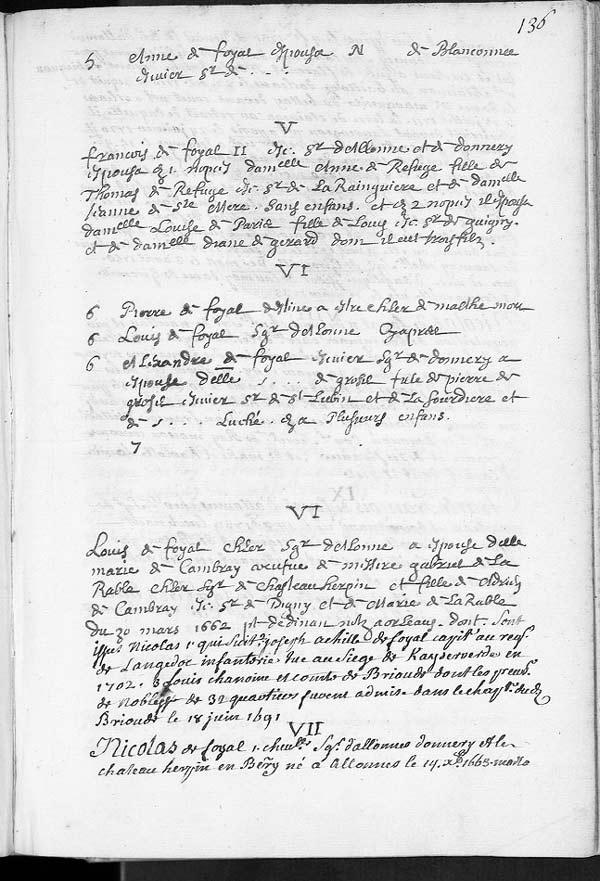 136
5 Anne de foyal espousa N de Blanconnee
escuier sr de . . .
V
francois de foyal II esc. sr dallonne et de donnery
espousa en 1. nopces damelle Anne de Refuge fille de
Thomas de Refuge esc. sr de La Rainguiere et de damelle
jeanne de Ste Mere. Sans enfans. et en 2 nopces il espousa
damelle Louise de Paris fille de Louis esc. sr de guigny.
et de damelle diane de gerard dont il eut trois filz.
VI
6 Pierre de foyal destine a estre chler de malthe mort
6 Louis de foyal Sgr dallonne
6 Alexandre de foyal escuier Sgr de donnery a
espouse delle . . . . de grosil fille de pierre de
grosil escuier sr de St Lubin et de La Sourdiere et
de . . . . Luché. en a Plusieurs enfans.
7
VI
Louis de foyal chler Sgr dallonne a espouse delle
marie de Cambray veufue de messire gabriel de La
Rable chler Sgr de Chasteau herpin et fille de
de Cambray esc. sr de Digny et de Marie de La Rable
du 30 mars 1662 pt dedinan notre a orleans. dont. Sont
issus Nicolas 1. qui suit 2. joseph achille de foyal capit. au reg.
de Langedoc infanterie tue au Siege de Kayserverde en
1702. 3 Louis chanoine et comte de Brioude dont les preuv.
de Noblesse de 32 quartiers furent admis. dans le chap.
Brioude le 18 juin 1691
VII
Nicolas de foyal 1. cheval. Sgr dallonnes donnery et le
chateau herpin en Berry né a Allonnes le 14. xb. 1663.